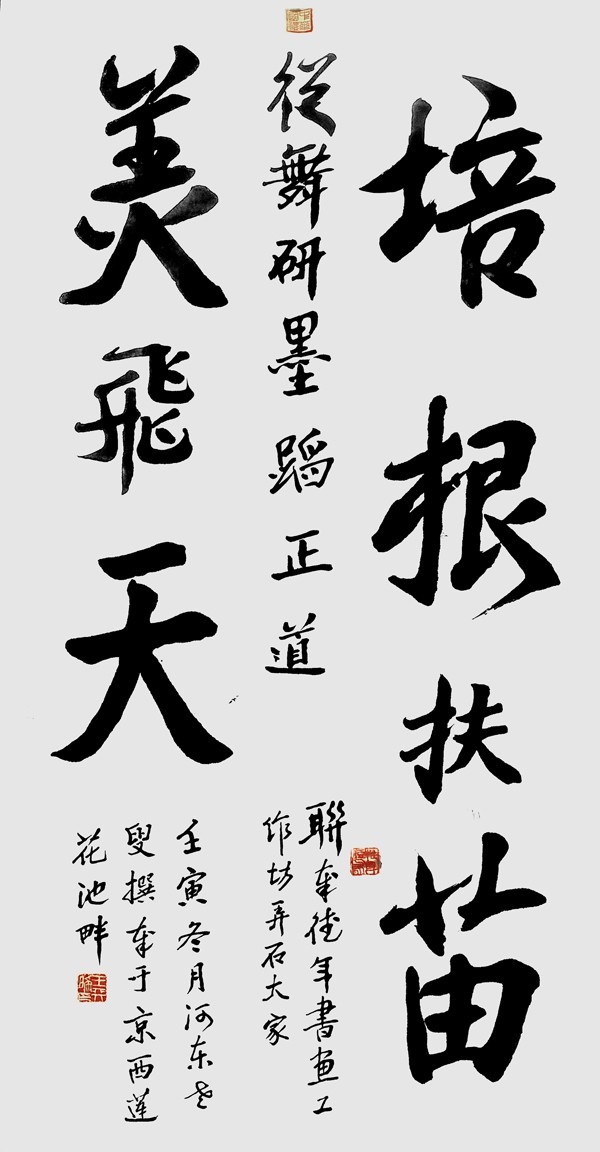 培根扶苗
美飛天
從舞研墨蹈正道
聯奉年書画工
作坊弄石大家
壬寅冬月河东老
叟撰奉于京西莲
花池畔